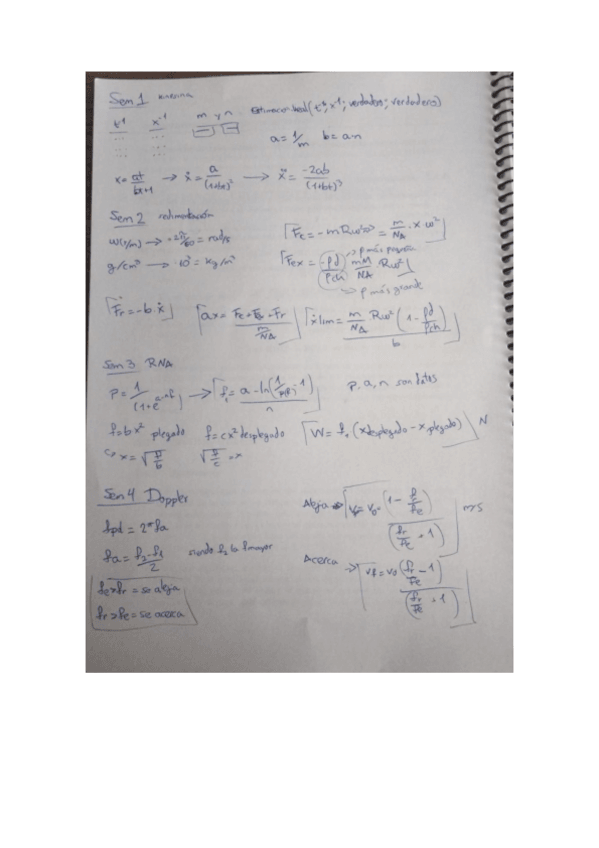 Sem 1
t⁻¹ x⁻¹ m y n Estimacion lineal (t⁻¹; x⁻¹; verdadero; verdadero)
... ...
... ... a = 1/m b = a·n
... ...
x = at/(bt+1) → ẋ = a/(1+bt)² → ẍ = -2ab/(1+bt)³
Sem 2 sedimentación
W(r/m) → · 2π/60 = rad/s
[Fc = -m Rω² = m/NA · x · ω²]
g/cm³ → · 10³ = kg/m³
[Fex = -ρd/ρch mM/NA Rω²]
ρ más pequeña
ρ más grande
[Fr = -b·ẋ] [ax = (Fc + Fex - Fr)/(m/NA)] [ẋ lim = m/NA Rω² (1 - ρd/ρch)/b]
Sem 3 RNA
→ [f₀ = (a - ln(1/p - 1))/n] p, a, n son datos
f = bx² plegado f = cx² desplegado [W = f₀ (xdesplegado - xplegado)] N
Sem 4 Doppler
fpd = 2·fa
fa = (f₂ - f₁)/2 siendo f₂ la f mayor
fe > fr = se aleja
fr > fe = se acerca
Aleja → (1 - fr/fe)/(fr/fe + 1) m/s
Acerca → (fr/fe - 1)/(fr/fe + 1)